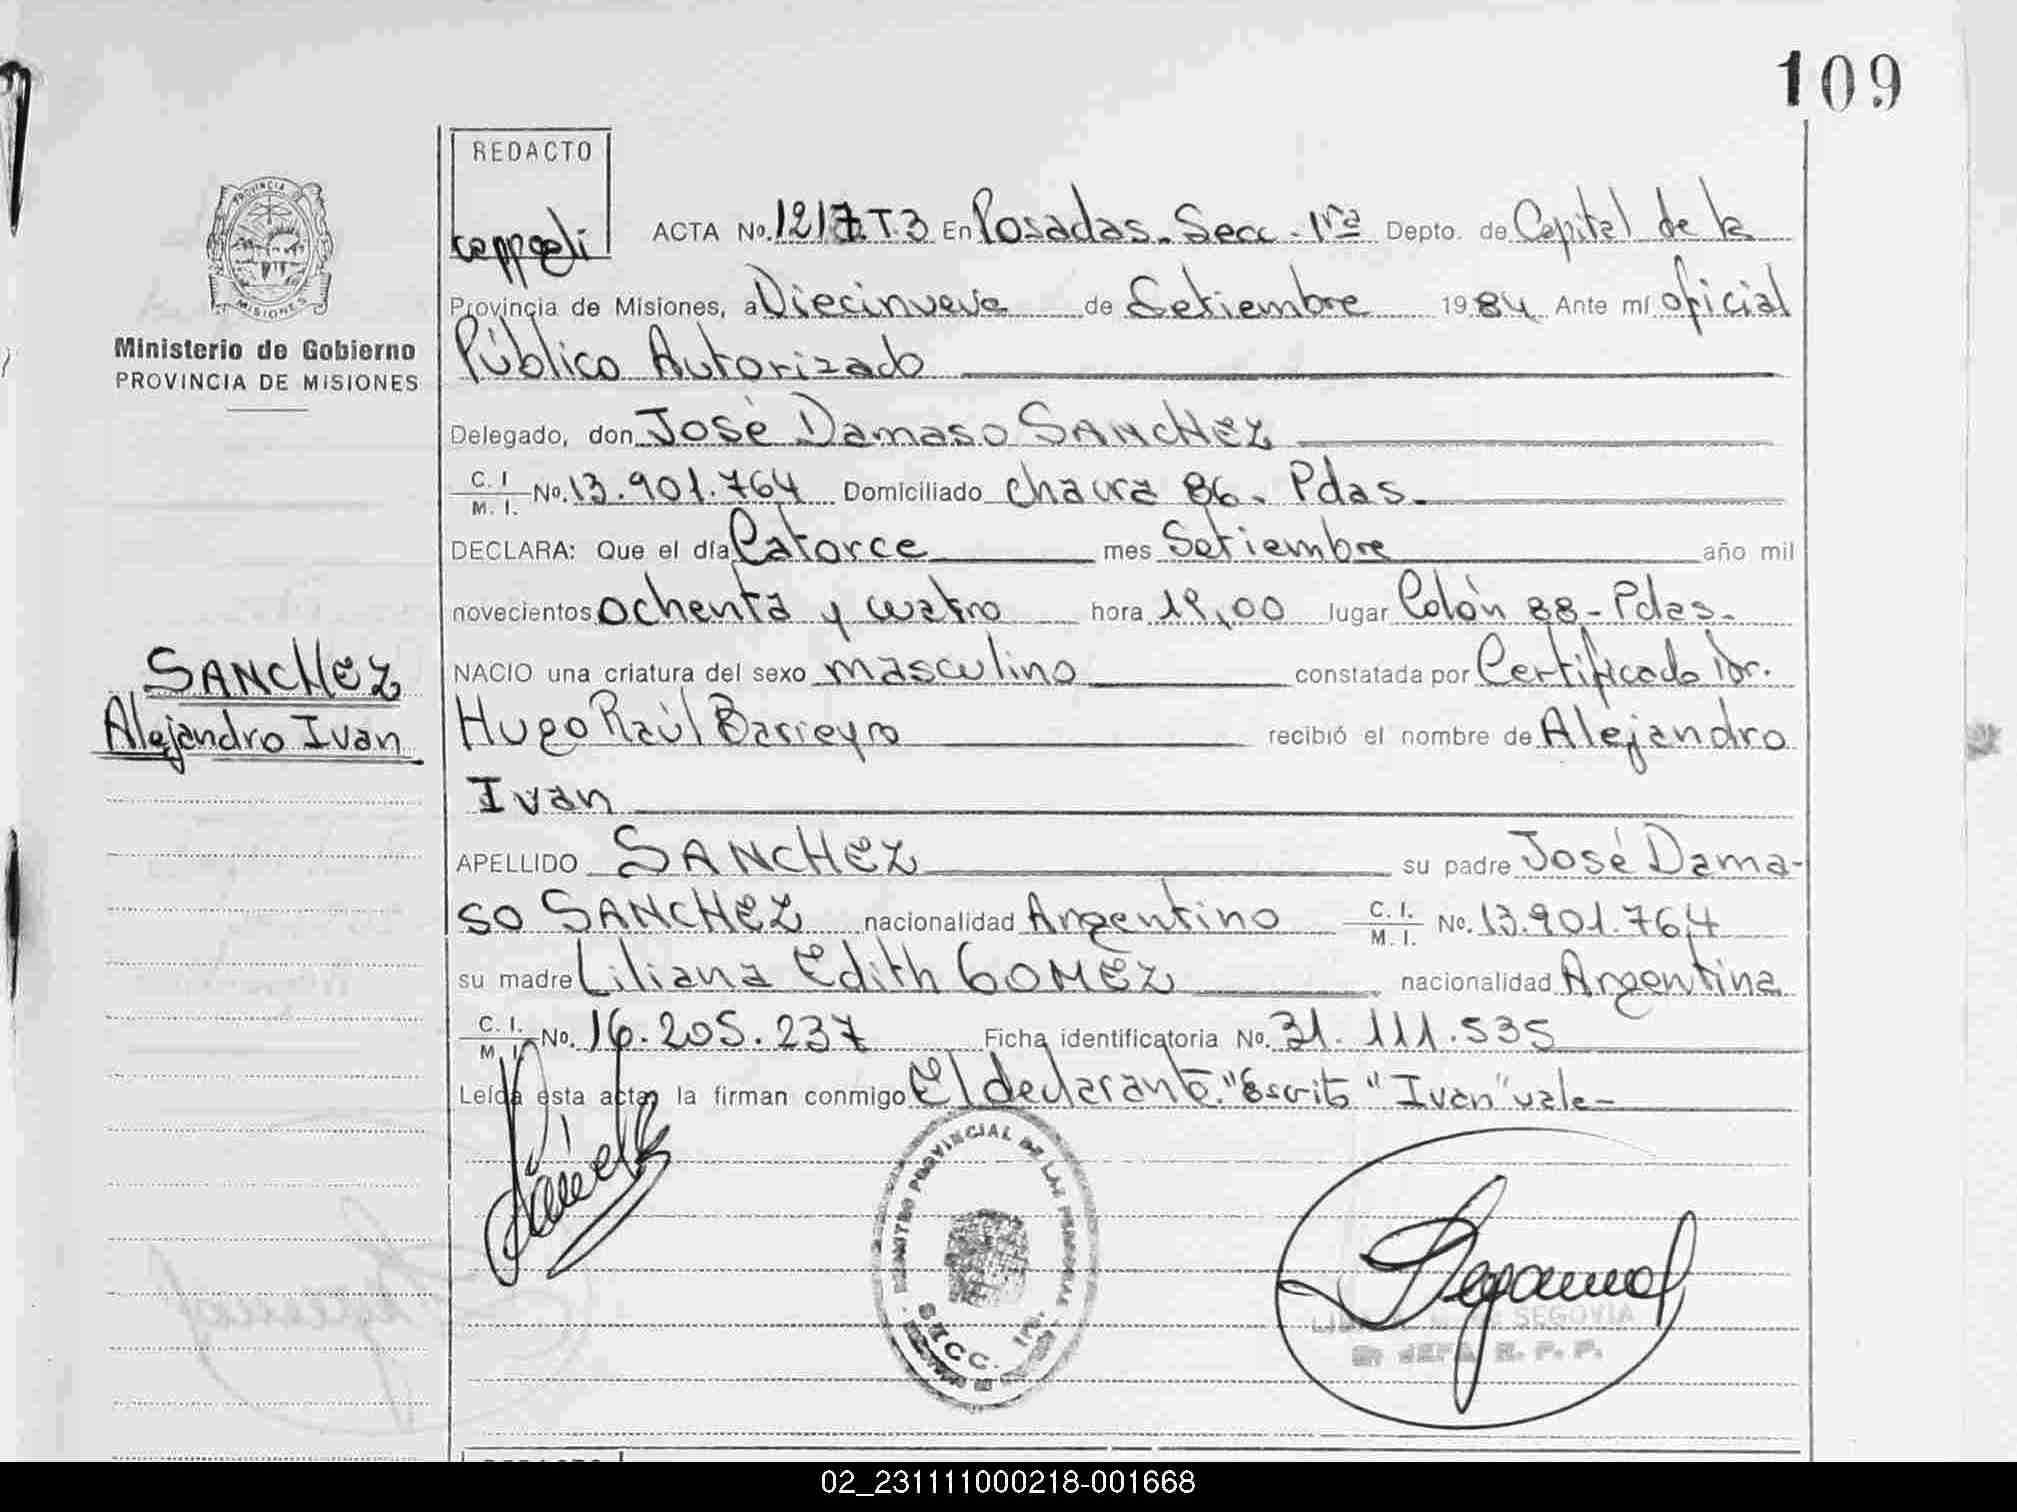 109
REDACTO
ACTA No. 1217 T.3 En Posadas. Secc. 1ra Depto. de Capital de la
Provincia de Misiones, a Diecinueve de Setiembre 1984 Ante mí oficial
Público Autorizado
Ministerio de Gobierno
PROVINCIA DE MISIONES
Delegado, don José Damaso SANCHEZ
C. I. M. I. No. 13.901.764 Domiciliado chacra 86. Pdas.
DECLARA: Que el día Catorce mes Setiembre año mil
novecientos ochenta y cuatro hora 19,00 lugar Colón 88 - Pdas.
SANCHEZ
Alejandro Ivan
NACIO una criatura del sexo masculino constatada por Certificado Dr.
Hugo Raúl Barreyro recibió el nombre de Alejandro
Ivan
APELLIDO SANCHEZ su padre José Dama-
so SANCHEZ nacionalidad Argentino C. I. M. I. No. 13.901.764
su madre Liliana Edith GOMEZ nacionalidad Argentina
C. I. M. I. No. 16.205.237 Ficha identificatoria No. 31.111.535
Leída esta acta, la firman conmigo El declarante. "Escrito "Ivan" vale-
REGISTRO PROVINCIAL DE LAS PERSONAS
SECC. 1ra.
SEGOVIA
JEFA R. P. P.
02_231111000218-001668